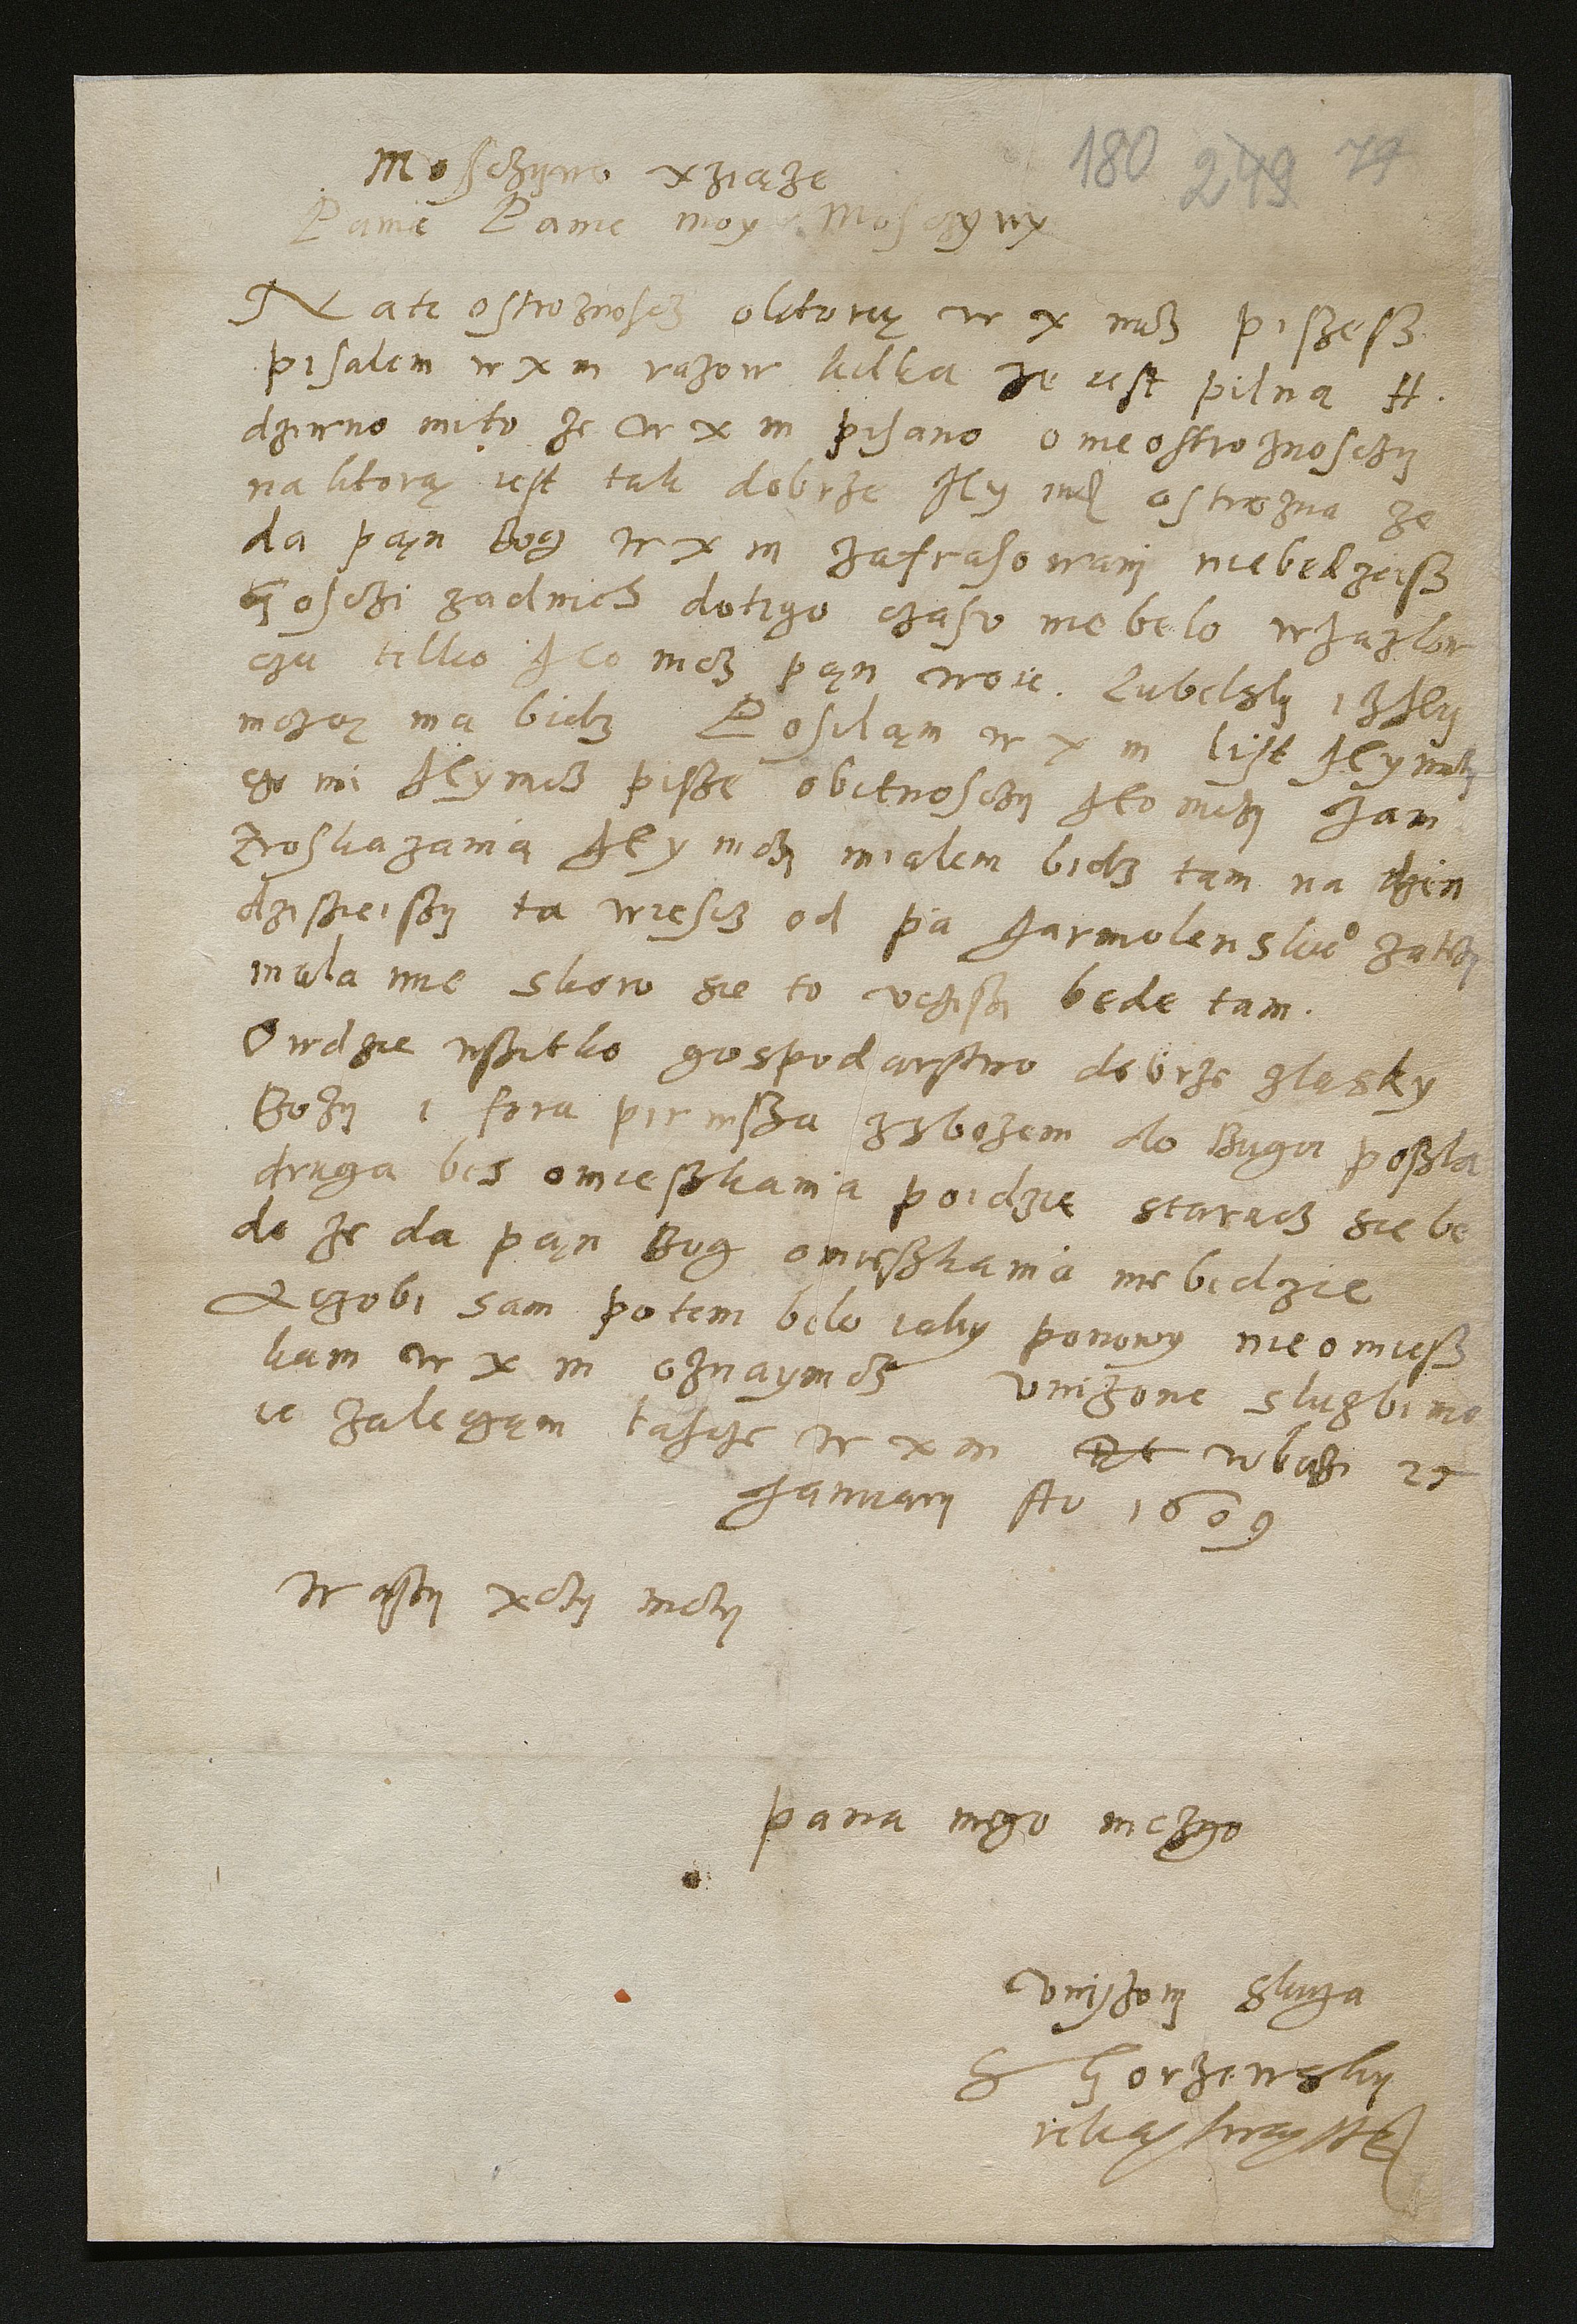 180 249 74
Mosczywe xziąże
Panie Panie moy Mosczywy
Nate ostroznoscz oktorą w x mcz piszesz
pisalem w x m razow kilka ze iest pilna
dziwno mi to ze w x m pisano o nieostroznosczy
na ktorą iest tak dobrze ostrozna ze
da pąn bog w x m zafrasowany niebędziesz
Gosczi zadnich dotego czasu niebelo
cza tilko Je͡o mcz pąn woie. Lubelsky
ma bicz Posiląm w x m list
mi Je͡y mcz pisze obitnosczy Je͡o mczy Jam
zroskazania Je͡y mczy mialem bicz tam na dzien
dzisieiszy ta wiescz od pa Jarmolenskie͡o
mala mie skoro sie to uczisci bede tam.
Owdzie wszitko gospodarstwo dobrze zlasky
Bozy i fora pirwsza zzbozem do Buga poszla
druga bes omieszkania poidzie staracz sie be
de ze da pąn Bog omieszkania niebidzie
sam potem belo iaky ponowy nieomiesz
kam w x m oznaymicz unizone sluzbi mo
ie zaleczam łascze w x m 25
January Ao 1609
Waszy xczy mczy
pana mego mczgo
Unizony sluga
S Gorzewsky